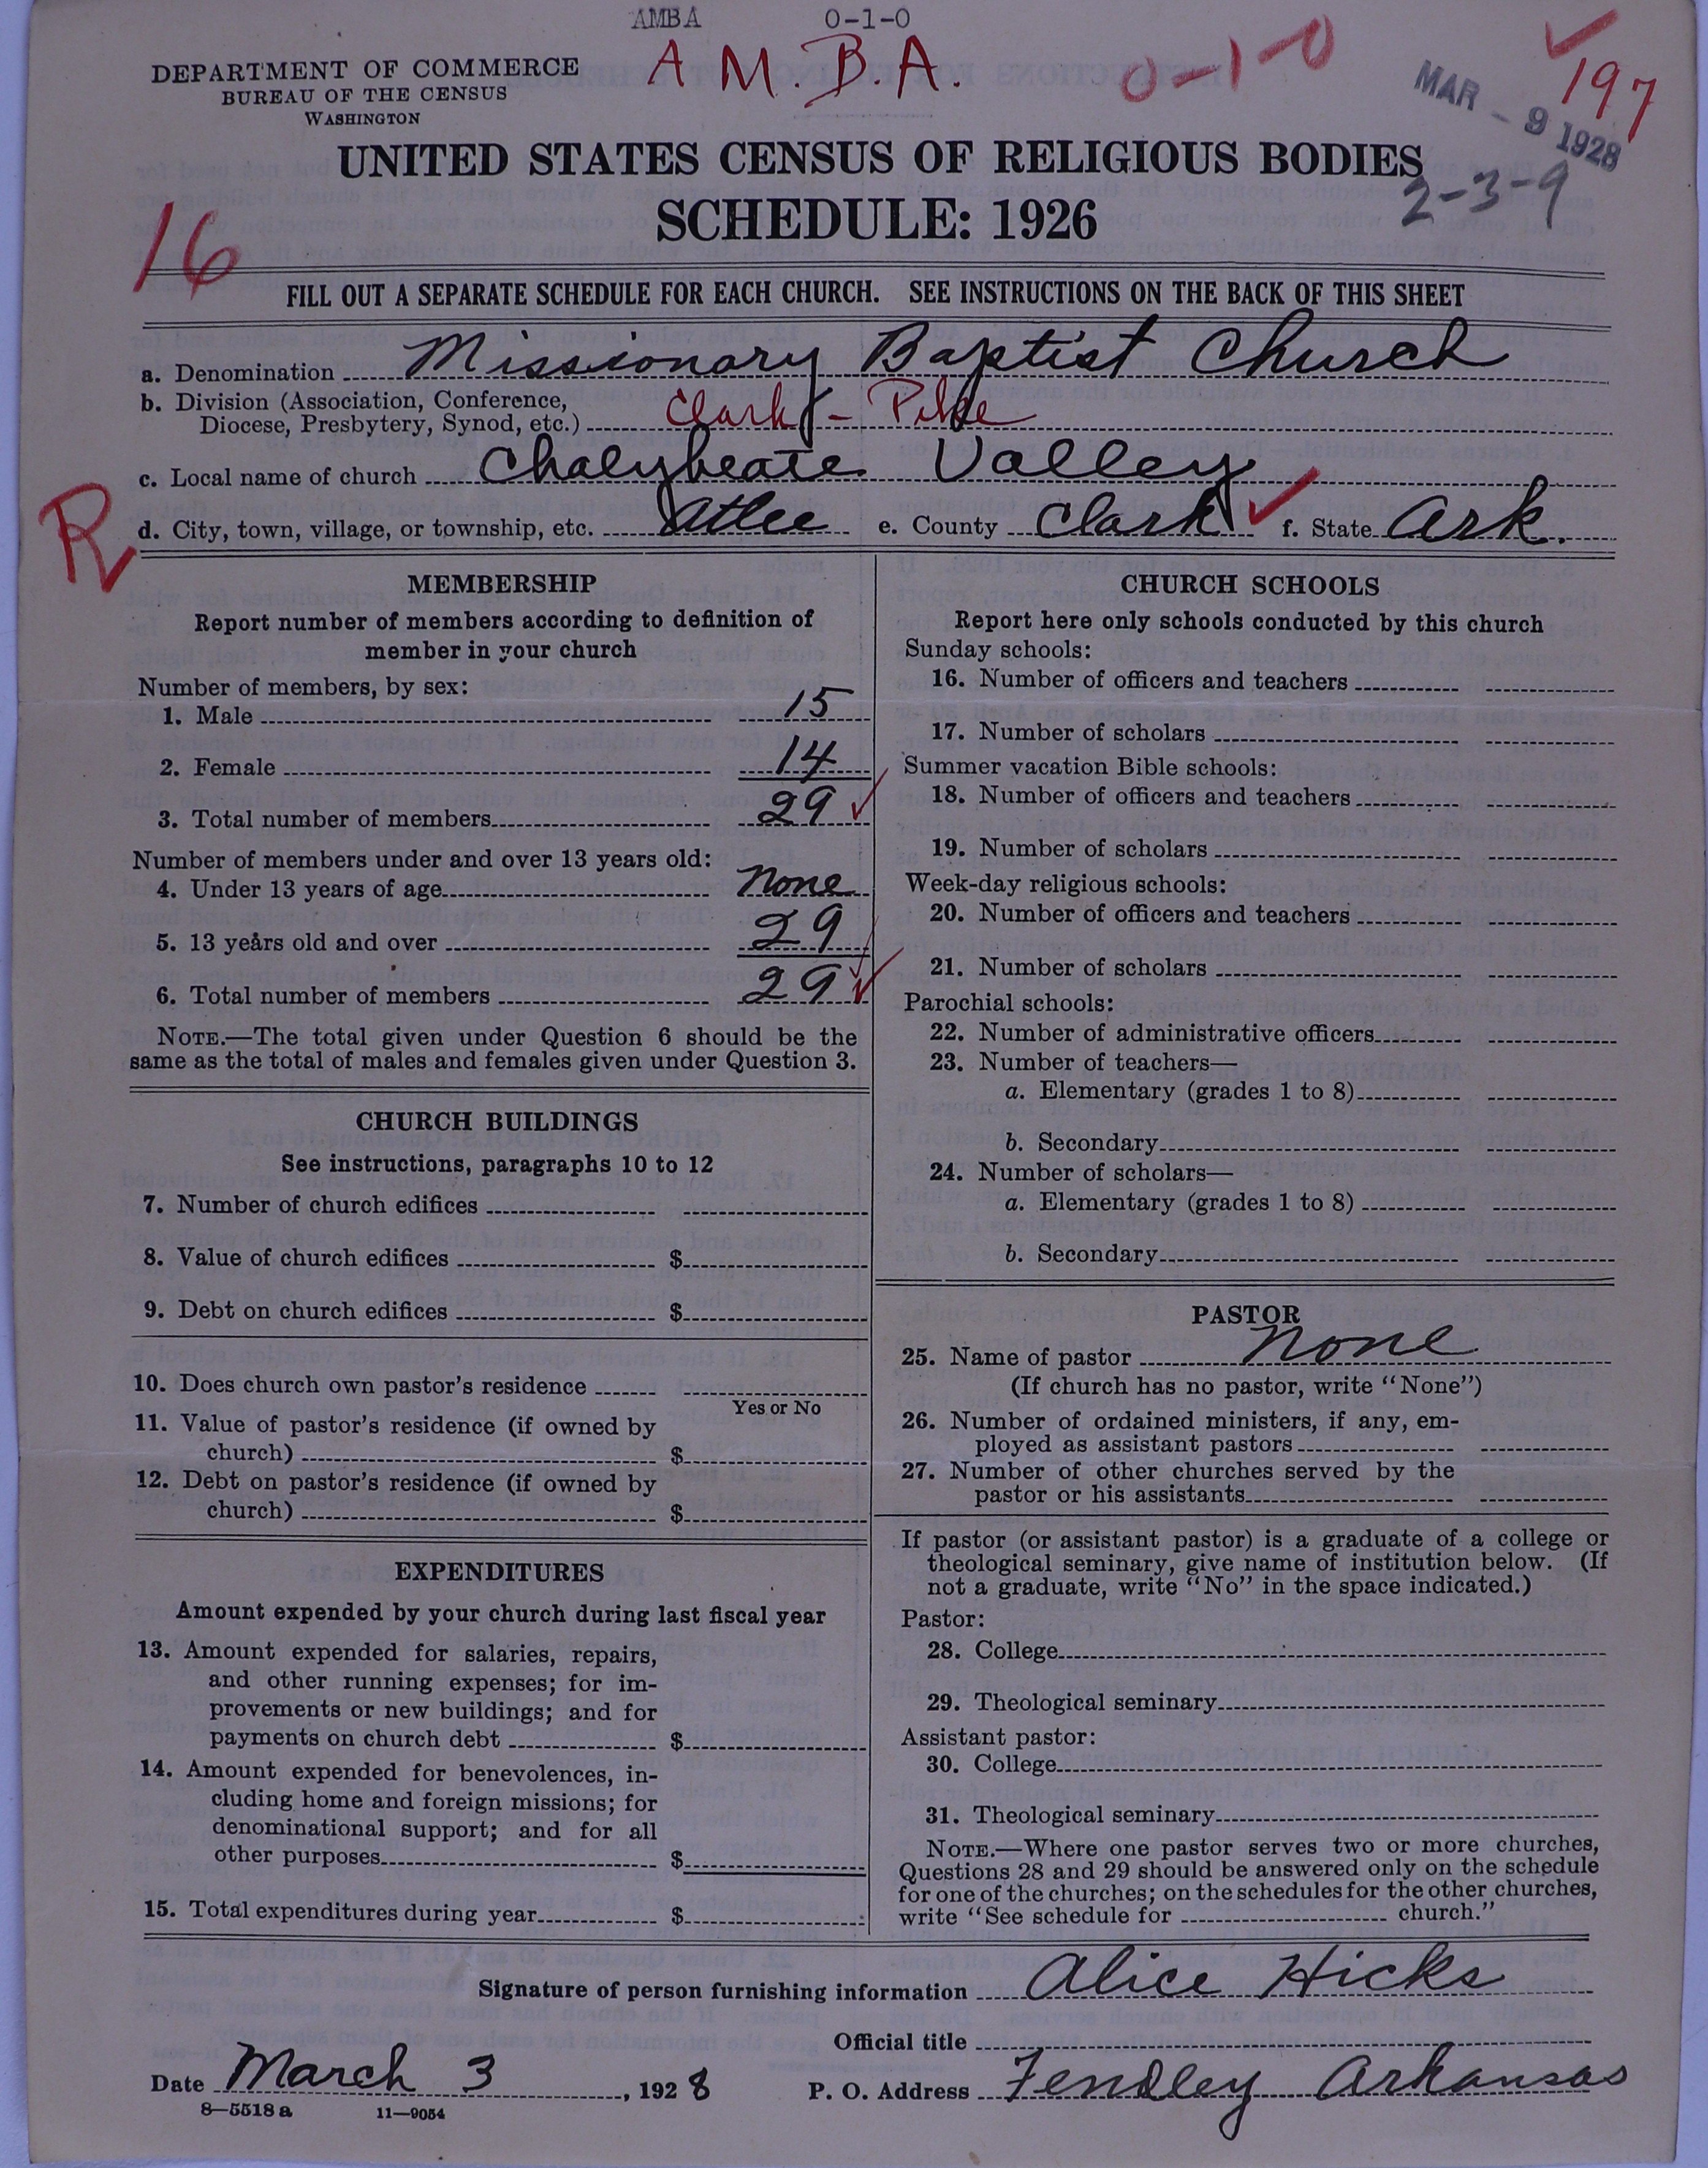 AMBA 0-1-0
A. M. B. A. 0-1-0
197
MAR - 9 1928
2-3-9
DEPARTMENT OF COMMERCE
BUREAU OF THE CENSUS
WASHINGTON
UNITED STATES CENSUS OF RELIGIOUS BODIES
SCHEDULE: 1926
16
FILL OUT A SEPARATE SCHEDULE FOR EACH CHURCH. SEE INSTRUCTIONS ON THE BACK OF THIS SHEET
a. Denomination Missionary Baptist Church
b. Division (Association, Conference,
Diocese, Presbytery, Synod, etc.) Clark - Pike
c. Local name of church Chalybeate Valley
R
d. City, town, village, or township, etc. Atlee e. County Clark f. State Ark.
MEMBERSHIP
Report number of members according to definition of
member in your church
Number of members, by sex:
1. Male 15
2. Female 14
3. Total number of members 29
Number of members under and over 13 years old:
4. Under 13 years of age None
5. 13 years old and over 29
6. Total number of members 29
NOTE.—The total given under Question 6 should be the
same as the total of males and females given under Question 3.
CHURCH BUILDINGS
See instructions, paragraphs 10 to 12
7. Number of church edifices
8. Value of church edifices $
9. Debt on church edifices $
10. Does church own pastor's residence
Yes or No
11. Value of pastor's residence (if owned by
church) $
12. Debt on pastor's residence (if owned by
church) $
EXPENDITURES
Amount expended by your church during last fiscal year
13. Amount expended for salaries, repairs,
and other running expenses; for im-
provements or new buildings; and for
payments on church debt $
14. Amount expended for benevolences, in-
cluding home and foreign missions; for
denominational support; and for all
other purposes $
15. Total expenditures during year $
CHURCH SCHOOLS
Report here only schools conducted by this church
Sunday schools:
16. Number of officers and teachers
17. Number of scholars
Summer vacation Bible schools:
18. Number of officers and teachers
19. Number of scholars
Week-day religious schools:
20. Number of officers and teachers
21. Number of scholars
Parochial schools:
22. Number of administrative officers
23. Number of teachers—
a. Elementary (grades 1 to 8)
b. Secondary
24. Number of scholars—
a. Elementary (grades 1 to 8)
b. Secondary
PASTOR
25. Name of pastor None
(If church has no pastor, write "None")
26. Number of ordained ministers, if any, em-
ployed as assistant pastors
27. Number of other churches served by the
pastor or his assistants
If pastor (or assistant pastor) is a graduate of a college or
theological seminary, give name of institution below. (If
not a graduate, write "No" in the space indicated.)
Pastor:
28. College
29. Theological seminary
Assistant pastor:
30. College
31. Theological seminary
NOTE.—Where one pastor serves two or more churches,
Questions 28 and 29 should be answered only on the schedule
for one of the churches; on the schedules for the other churches,
write "See schedule for church."
Signature of person furnishing information Alice Hicks
Official title
Date March 3, 1928 P. O. Address Fendley Arkansas
8—5518 a 11—9054